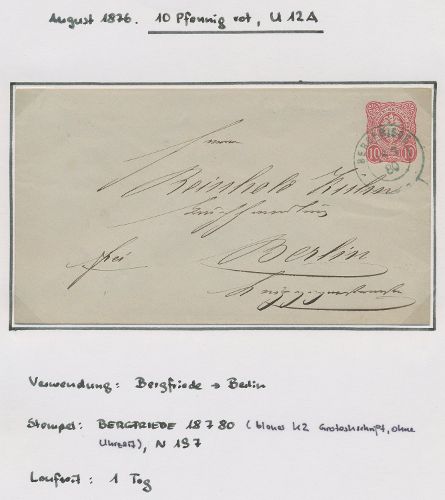 August 1876. 10 Pfennig rot, U 12 A
BERGFRIEDE
80
10 10
Herrn
Reinhold Kuhn
Buchhandlung
frei
Berlin
Verwendung: Bergfriede → Berlin
Stempel: BERGFRIEDE 18 7 80 (blauer K2 Groteskschrift, ohne
Uhrzeit), N 197
Laufzeit: 1 Tag